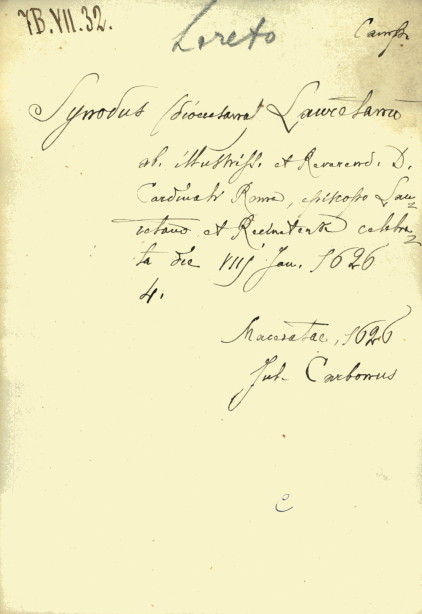 7B.VII.32.
Loreto
Camp.
Synodus (dioecesana) Lauretana
ab. Illustriss. et Reverend. D.
Cardinali Roma, episcopo Lau-
retano et Recinetensi celebra-
ta die VIIJ Jan. 1626
4.
Maceratae, 1626
Jul. Carbonus
C